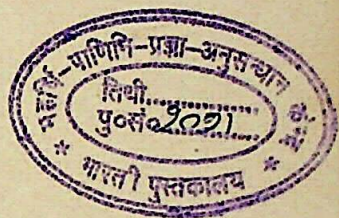 महर्षि-पाणिनि-प्रज्ञा-अनुसन्धान
तिथी..............
पु०सं० 2091
* भारती पुस्तकालय *